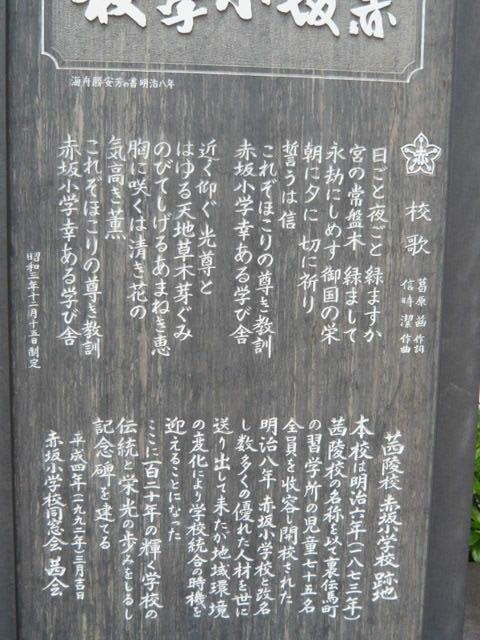 赤坂小学校
海舟勝安芳の書 明治八年
赤
校歌
葛原 𦱳 作詞
信時 潔 作曲
日ごと夜ごと 緑ますか
宮の常盤木 緑まして
永劫にしめす 御国の栄
朝に夕に 切に祈り
誓うは信
これぞほこりの尊き教訓
赤坂小学幸ある学び舎
近く仰ぐ 光尊と
はゆる天地草木芽ぐみ
のびてしげるあまねき恵
胸に咲くは清き花の
気高き薫
これぞほこりの尊き教訓
赤坂小学幸ある学び舎
昭和三年十二月十五日制定
茜陵校 赤坂小学校 跡地
本校は明治六年(一八七三年)
茜陵校の名称を以て裏伝馬町
の習学所の児童七十五名
全員を收容し開校された
明治八年 赤坂小学校と改名
し数多くの優れた人材を世に
送り出して来たが地域環境
の変化により学校統合の時機を
迎えることになった
ここに百二十年の輝く学校の
伝統と栄光の歩みをしるし
記念碑を建てる
平成四年(一九九二年)三月吉日
赤坂小学校同窓会 茜会